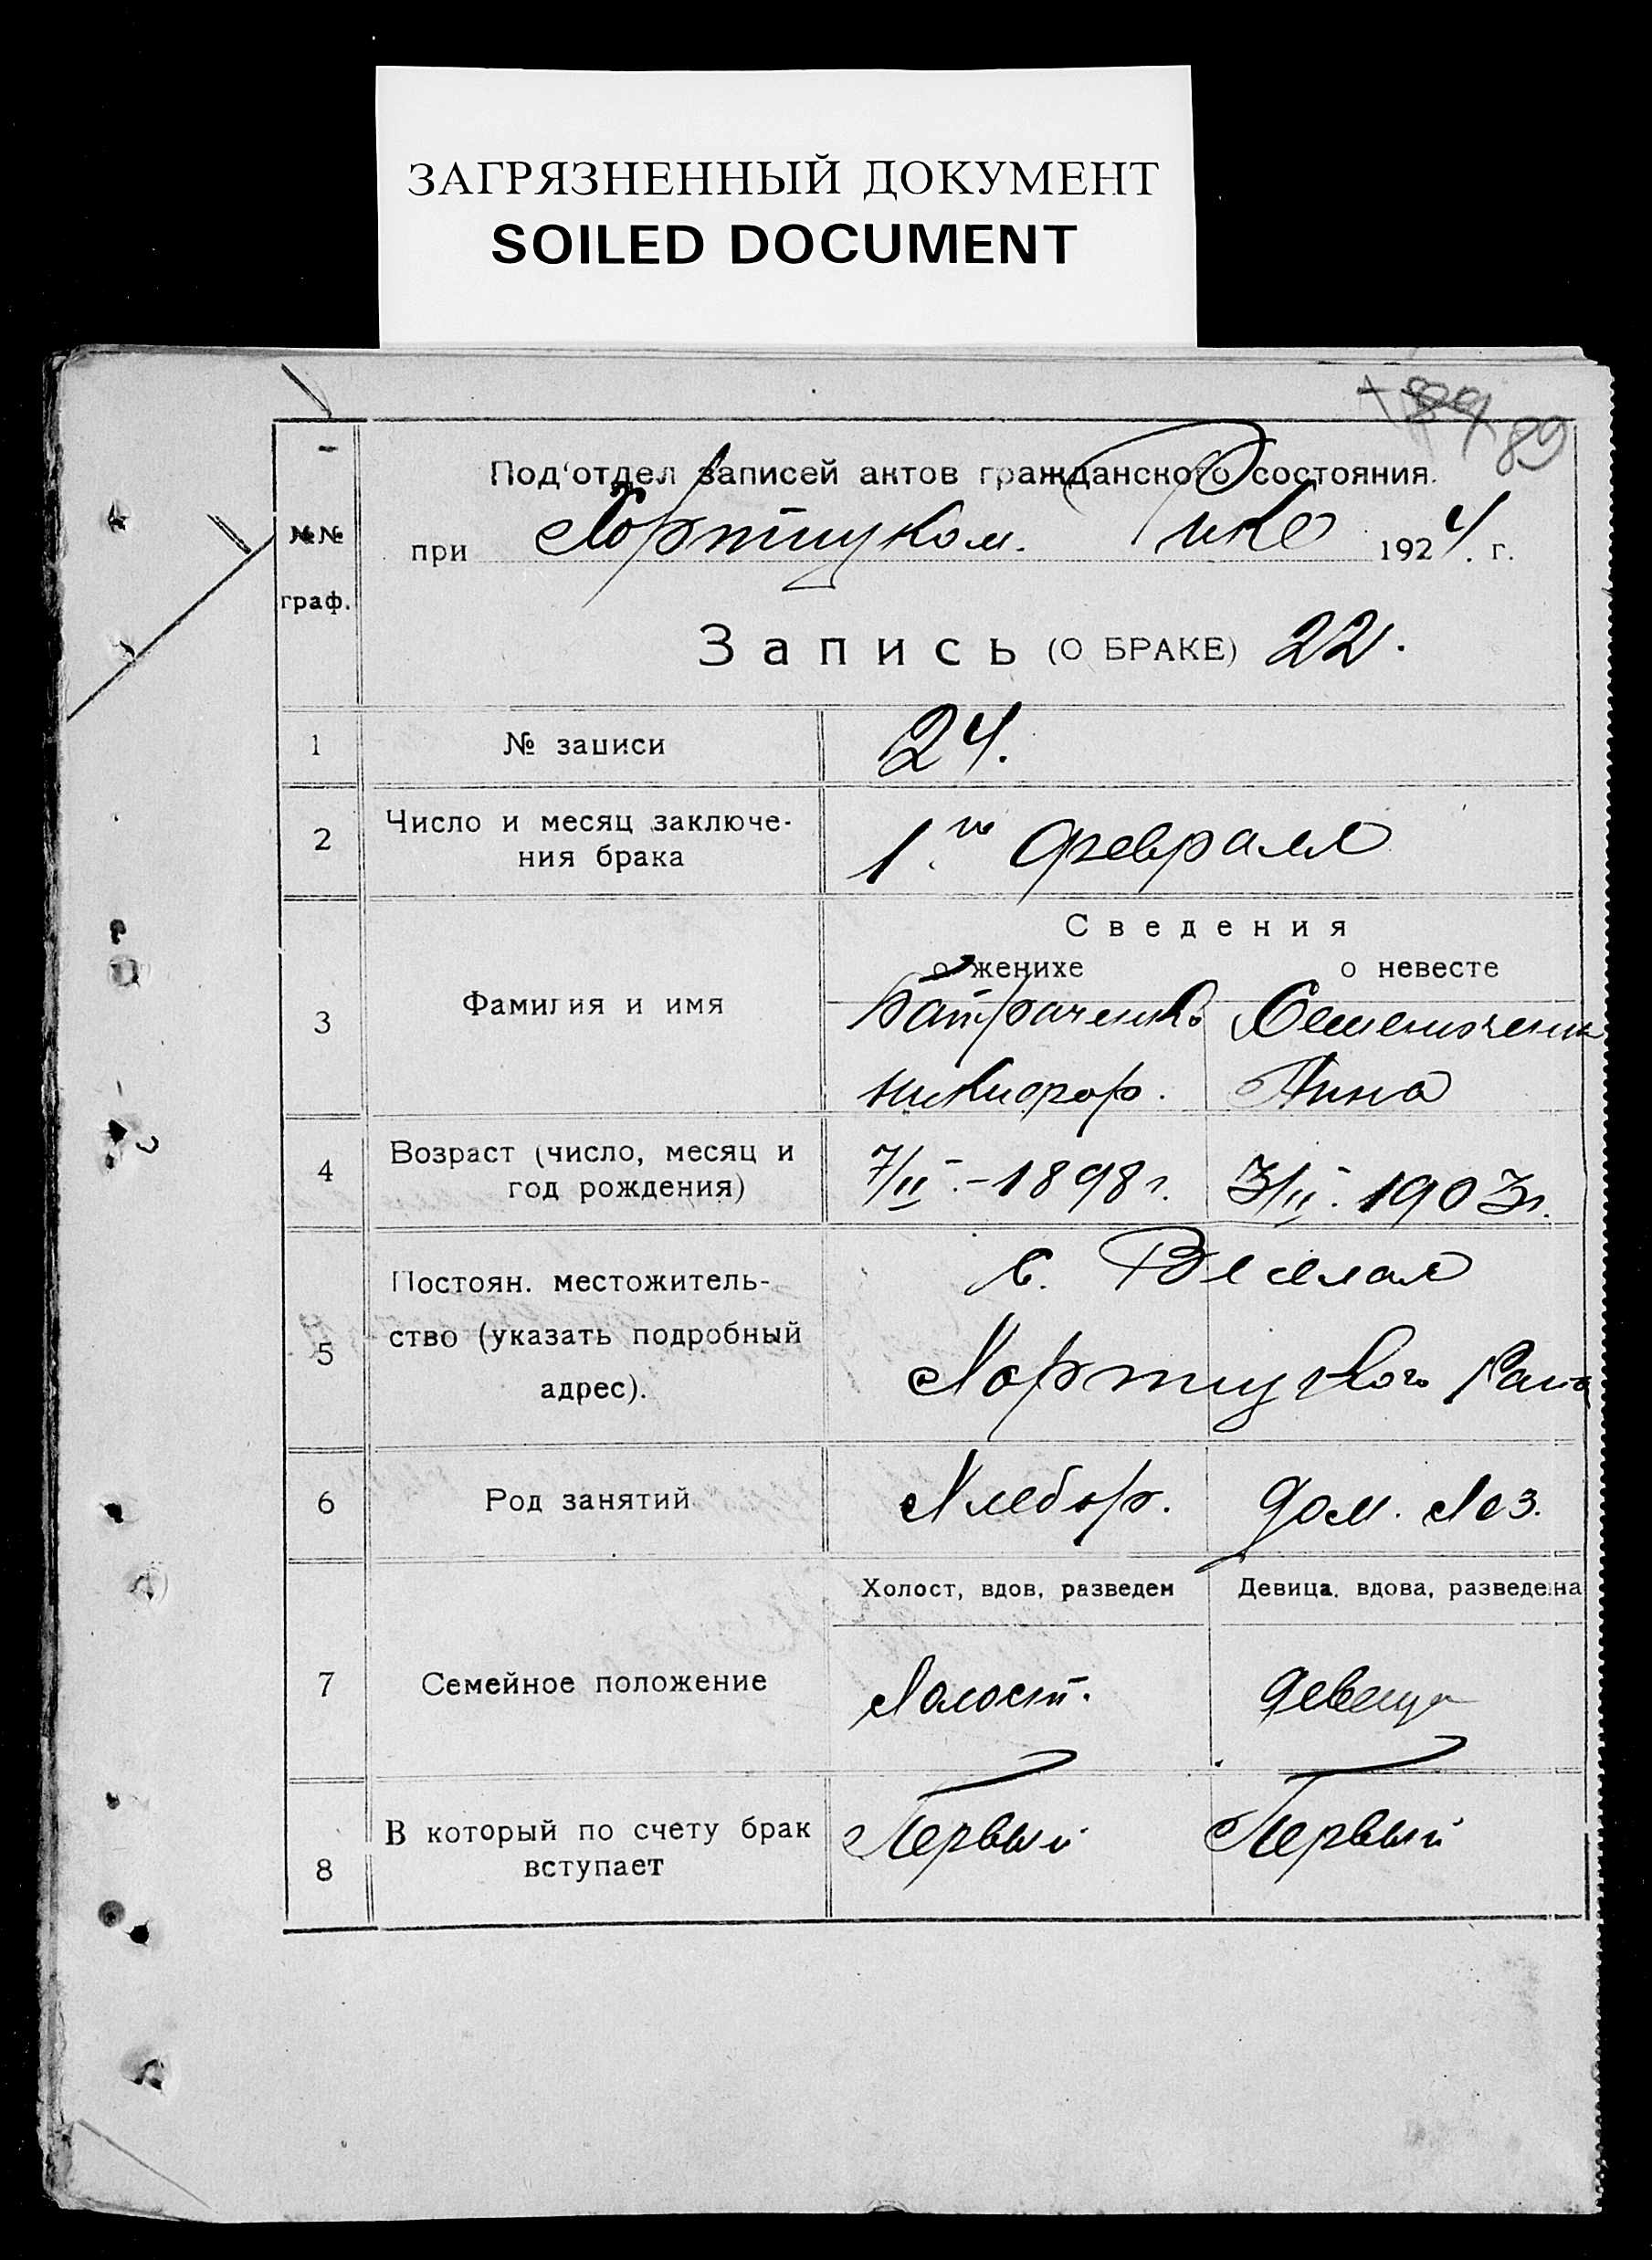 ЗАГРЯЗНЕННЫЙ ДОКУМЕНТ
SOILED DOCUMENT
89
Под'отдел записей актов гражданского состояния.
№№
граф.
при Хортицком. Рике 1924. г.
Запись (О БРАКЕ) 22.
1 № записи 24.
2 Число и месяц заключе-
ния брака
1го февраля
Сведения
о женихе о невесте
3 Фамилия и имя
Батраченко
Никифор. Анна
4 Возраст (число, месяц и
год рождения)
7/II.-1898г. 3/II. 1903г.
5 Постоян. местожитель-
ство (указать подробный
адрес).
с. Веселая
Хортицкого
6 Род занятий Хлебор. дом. хоз.
Холост, вдов, разведен Девица, вдова, разведена
7 Семейное положение Холост. девица
8 В который по счету брак
вступает
Первый Первый